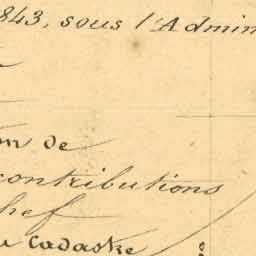 1843, sous l'Admin
on de
contributions
chef
u cadastre